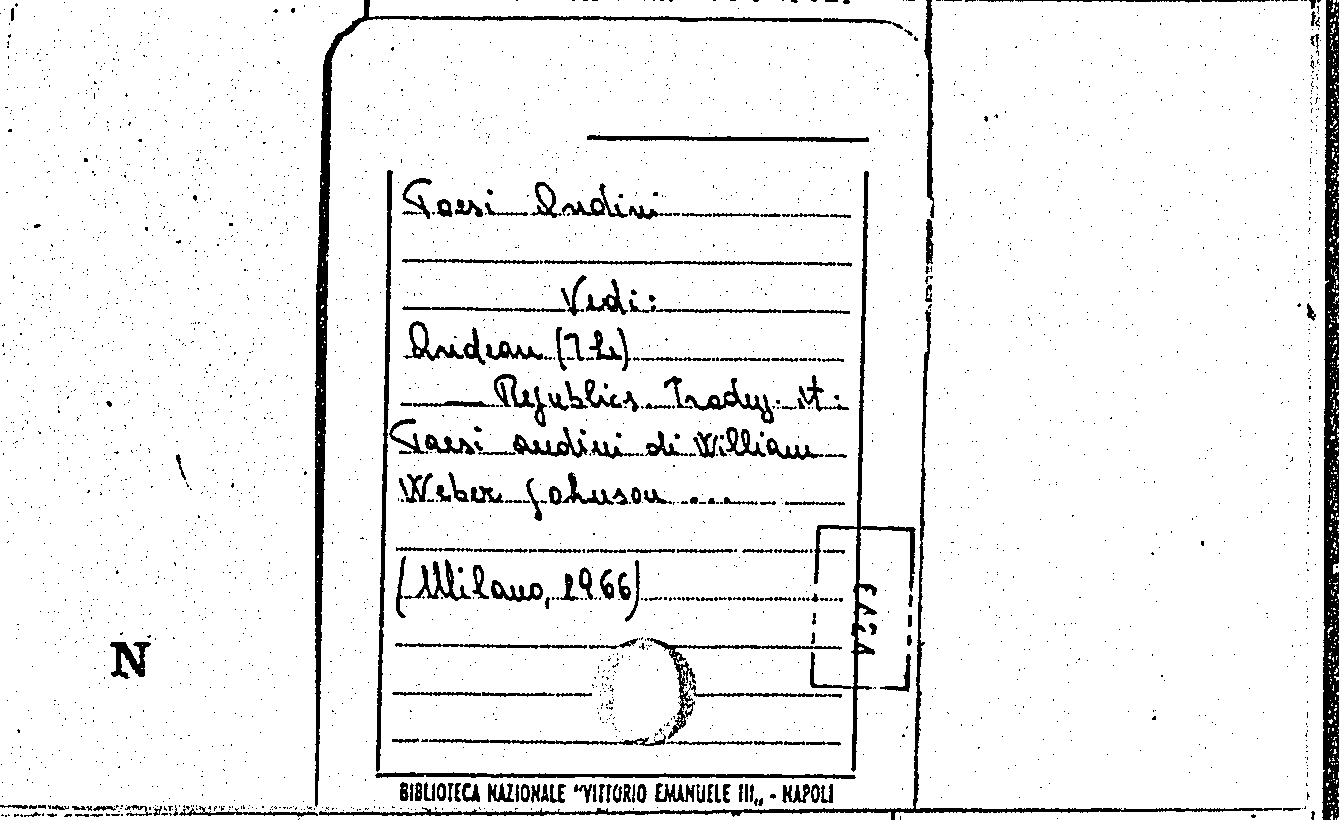 Paesi Andini
Vedi:
Andean (The)
— Republics. Traduz. it.:
Paesi andini di William
Weber Johnson ...
(Milano, 1966)
N
BIBLIOTECA NAZIONALE "VITTORIO EMANUELE III„ - NAPOLI